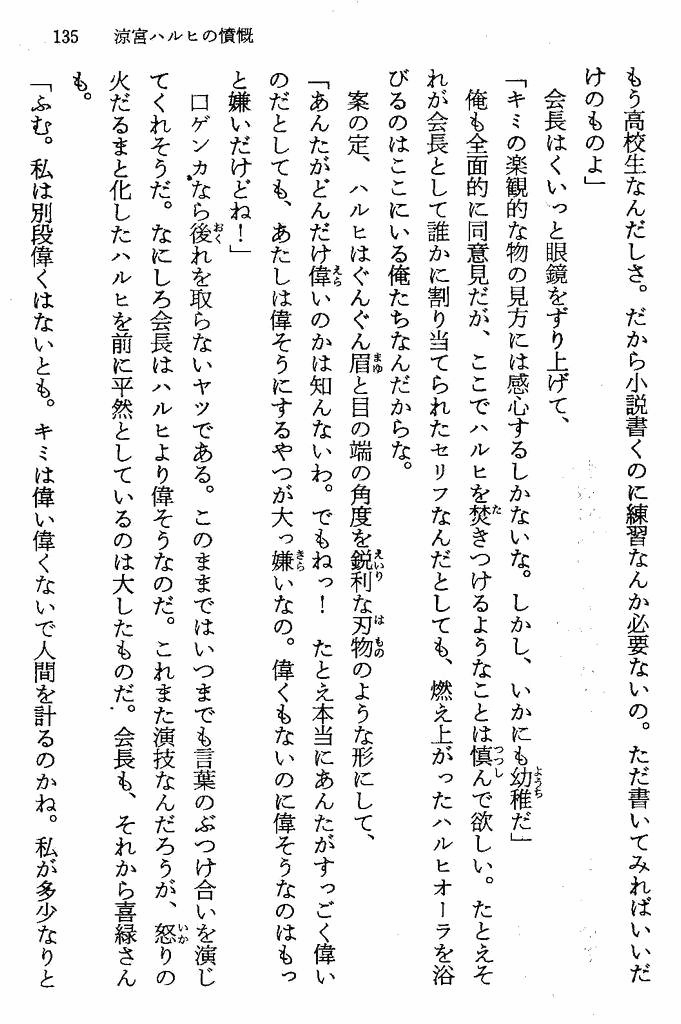 135 涼宮ハルヒの憤慨
もう高校生なんだしさ。だから小説書くのに練習なんか必要ないの。ただ書いてみればいいだ
けのものよ」
会長はくいっと眼鏡をずり上げて、
「キミの楽観的な物の見方には感心するしかないな。しかし、いかにも幼稚だ」
俺も全面的に同意見だが、ここでハルヒを焚きつけるようなことは慎んで欲しい。たとえそ
れが会長として誰かに割り当てられたセリフなんだとしても、燃え上がったハルヒオーラを浴
びるのはここにいる俺たちなんだからな。
案の定、ハルヒはぐんぐん眉と目の端の角度を鋭利な刃物のような形にして、
「あんたがどんだけ偉いのかは知んないわ。でもねっ！　たとえ本当にあんたがすっごく偉い
のだとしても、あたしは偉そうにするやつが大っ嫌いなの。偉くもないのに偉そうなのはもっ
と嫌いだけどね！」
口ゲンカなら後れを取らないヤツである。このままではいつまでも言葉のぶつけ合いを演じ
てくれそうだ。なにしろ会長はハルヒより偉そうなのだ。これまた演技なんだろうが、怒りの
火だるまと化したハルヒを前に平然としているのは大したものだ。会長も、それから喜緑さん
も。
「ふむ。私は別段偉くはないとも。キミは偉い偉くないで人間を計るのかね。私が多少なりと